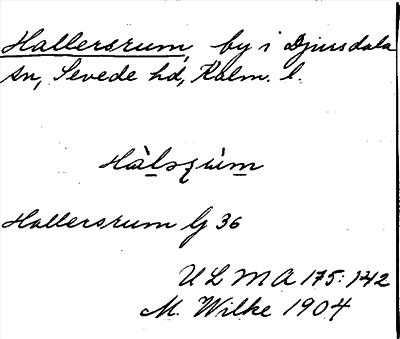 Hallersrum, by i Djursdala
sn, Sevede hd, Kalm. l.
Hallersrum Lj 36
ULMA 175:142
M. Wilke 1904